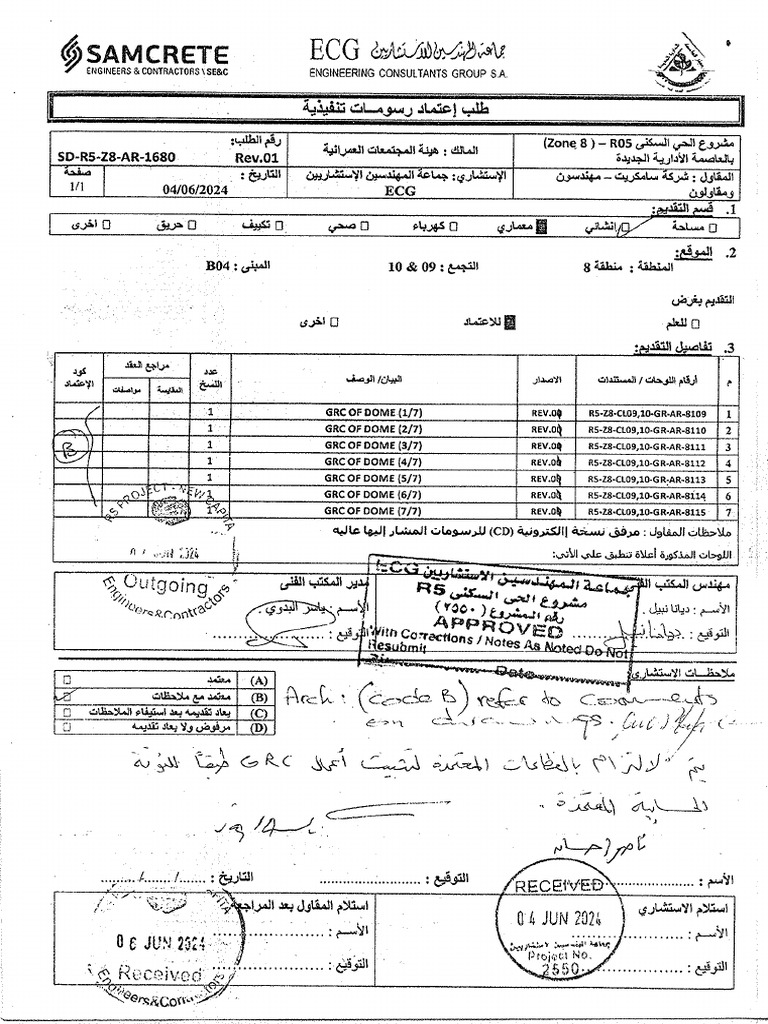 SAMCRETE
ENGINEERS & CONTRACTORS \ SE&C
ECG جماعة المهندسين الاستشاريين
ENGINEERING CONSULTANTS GROUP S.A.
طلب إعتماد رسومات تنفيذية
مشروع الحي السكنى R05 – ( Zone 8) بالعاصمة الأدارية الجديدة
المالك : هيئة المجتمعات العمرانية
رقم الطلب:
SD-R5-Z8-AR-1680 Rev.01
المقاول : شركة سامكريت – مهندسون ومقاولون
الإستشاري: جماعة المهندسين الإستشاريين ECG
التاريخ :
04/06/2024
صفحة
1/1
1. قسم التقديم:
مساحة إنشائي معماري كهرباء صحي تكييف حريق اخرى
2. الموقع:
المنطقة : منطقة 8 التجمع : 09 & 10 المبنى : B04
التقديم بغرض
للعلم للاعتماد اخرى
3. تفاصيل التقديم:
م أرقام اللوحات / المستندات الاصدار البيان/ الوصف عدد النسخ مراجع العقد كود الإعتماد
المقايسة مواصفات
1 R5-Z8-CL09,10-GR-AR-8109 REV.00 GRC OF DOME (1/7) 1
2 R5-Z8-CL09,10-GR-AR-8110 REV.00 GRC OF DOME (2/7) 1
3 R5-Z8-CL09,10-GR-AR-8111 REV.00 GRC OF DOME (3/7) 1
4 R5-Z8-CL09,10-GR-AR-8112 REV.00 GRC OF DOME (4/7) 1
5 R5-Z8-CL09,10-GR-AR-8113 REV.00 GRC OF DOME (5/7) 1
6 R5-Z8-CL09,10-GR-AR-8114 REV.00 GRC OF DOME (6/7) 1
7 R5-Z8-CL09,10-GR-AR-8115 REV.00 GRC OF DOME (7/7) 1
B
R5 PROJECT - NEW CAPITA
JUN 2024
Outgoing
Engineers&Contractors
ملاحظات المقاول : مرفق نسخة إلكترونية (CD) للرسومات المشار إليها عاليه
اللوحات المذكورة أعلاة تنطبق علي الأتي:
مهندس المكتب الفنى
مدير المكتب الفنى
الأسم : ديانا نبيل
الأسم : ياسر البدوي
التوقيع :
التوقيع :
جماعة المهندسين الاستشاريين ECG
مشروع الحى السكنى R5
رقم المشروع (٢٥٥٠)
APPROVED
With Corrections / Notes As Noted Do Not
Resubmit
Date
ملاحظات الاستشاري
(A) معتمد
(B) معتمد مع ملاحظات
(C) يعاد تقديمه بعد استيفاء الملاحظات
(D) مرفوض ولا يعاد تقديمه
Arch: (code B) refer to comments
on drawings.
يتم الالتزام بالقطاعات المعتمدة لتثبيت أعمال GRC طبقاً للنوتة
الحسابية المعتمدة.
الأسم : التوقيع : التاريخ : ....../....../......
استلام الاستشاري
استلام المقاول بعد المراجعة
الأسم :
الأسم :
التوقيع :
التوقيع :
RECEIVED
04 JUN 2024
جماعة المهندسين الاستشاريين
Project No.
2550
06 JUN 2024
Received
Engineers&Contractors